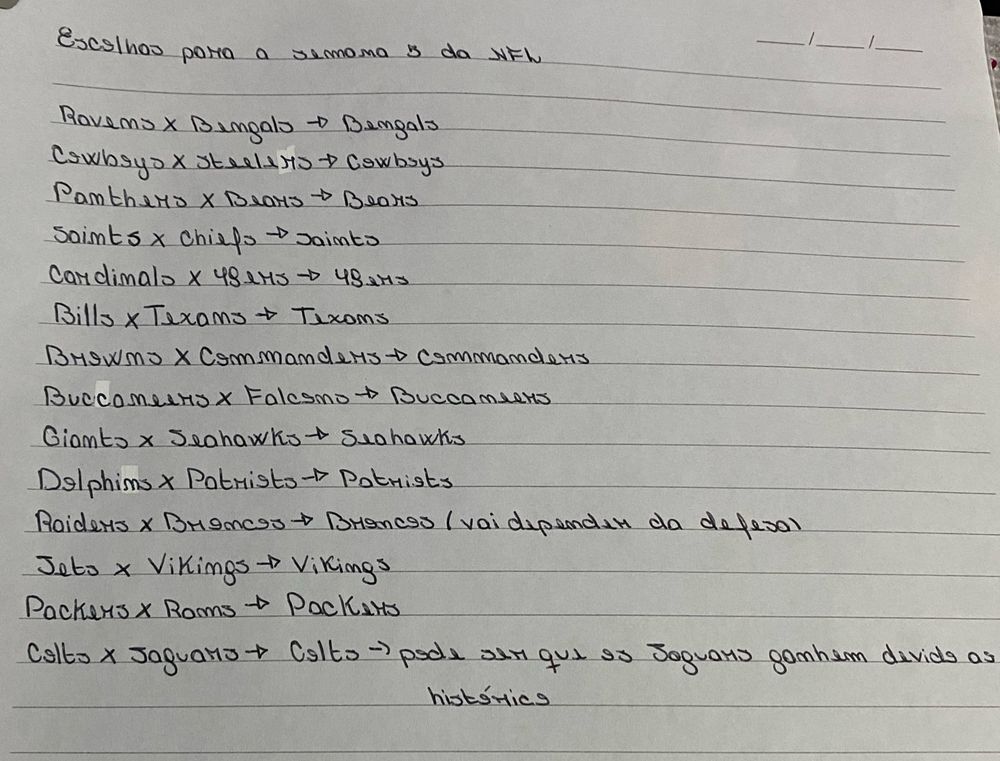 Escolhas para a semana 5 da NFL
__/__/__
Ravens x Bengals → Bengals
Cowboys x Steelers → Cowboys
Panthers x Bears → Bears
Saints x Chiefs → Saints
Cardinals x 49ers → 49ers
Bills x Texans → Texans
Browns x Commanders → Commanders
Buccaneers x Falcons → Buccaneers
Giants x Seahawks → Seahawks
Dolphins x Patriots → Patriots
Raiders x Broncos → Broncos (vai depender da defesa)
Jets x Vikings → Vikings
Packers x Rams → Packers
Colts x Jaguars → Colts → pode ser que os Jaguars ganhem devido ao
histórico